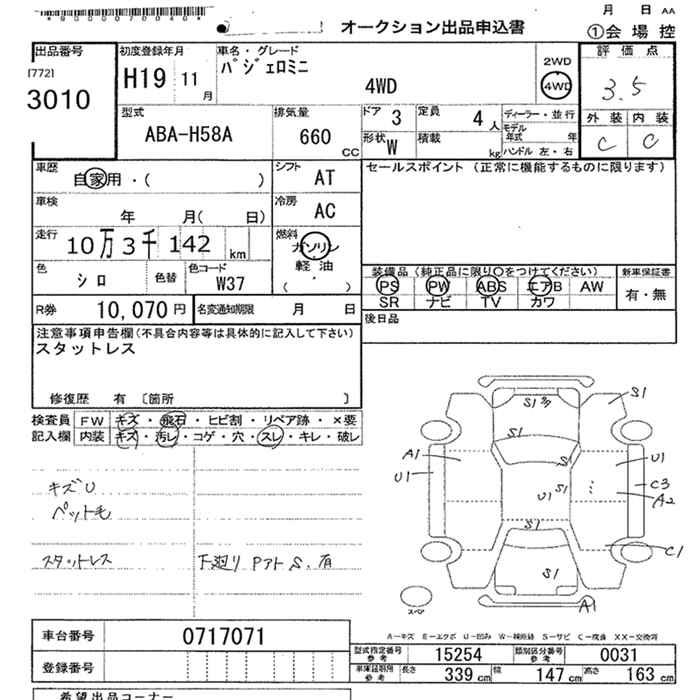 *80000710840*
月 日 AA
オークション出品申込書
①会場控
出品番号
[772]
3010
初度登録年月
H19 11月
車名・グレード
パジェロミニ
4WD
2WD
4WD
評価点
3.5
外装 内装
C C
型式
ABA-H58A
排気量
660 CC
ドア 3
定員 4人
形状 W
積載 kg
ディーラー・並行
モデル年式 年
ハンドル 左・右
車歴
自家用・( )
シフト
AT
セールスポイント (正常に機能するものに限ります)
車検
年 月( 日)
冷房
AC
走行
10万3千142 km
燃料
ガソリン
・
軽油
( ・ )
色
シロ
色替
色コード
W37
装備品 (純正品に限り○をつけてください)
PS PW ABS エアB AW
SR ナビ TV カワ
新車保証書
有・無
R券 10,070円
名変通知期限 月 日
後日品
注意事項申告欄(不具合内容等は具体的に記入して下さい)
スタットレス
修復歴 有 〔箇所 〕
検査員 FW キズ・飛石・ヒビ割・リペア跡・×要
記入欄 内装 キズ・汚レ・コゲ・穴・スレ・キレ・破レ
キズU
ペット毛
スタットレス
下廻り Pアト S.有
S1
S1
S1
A1
U1
S1
U1
S1
U1
C3
A2
S1
C1
S1
A1
スペア
A-キズ E-エクボ U-凹み W-補修跡 S-サビ C-腐食 XX-交換済
車台番号 0717071
登録番号
型式指定番号 参考 15254
類別区分番号 参考 0031
車庫証明用 参考 長さ 339cm 幅 147cm 高さ 163cm
希望出品コーナー